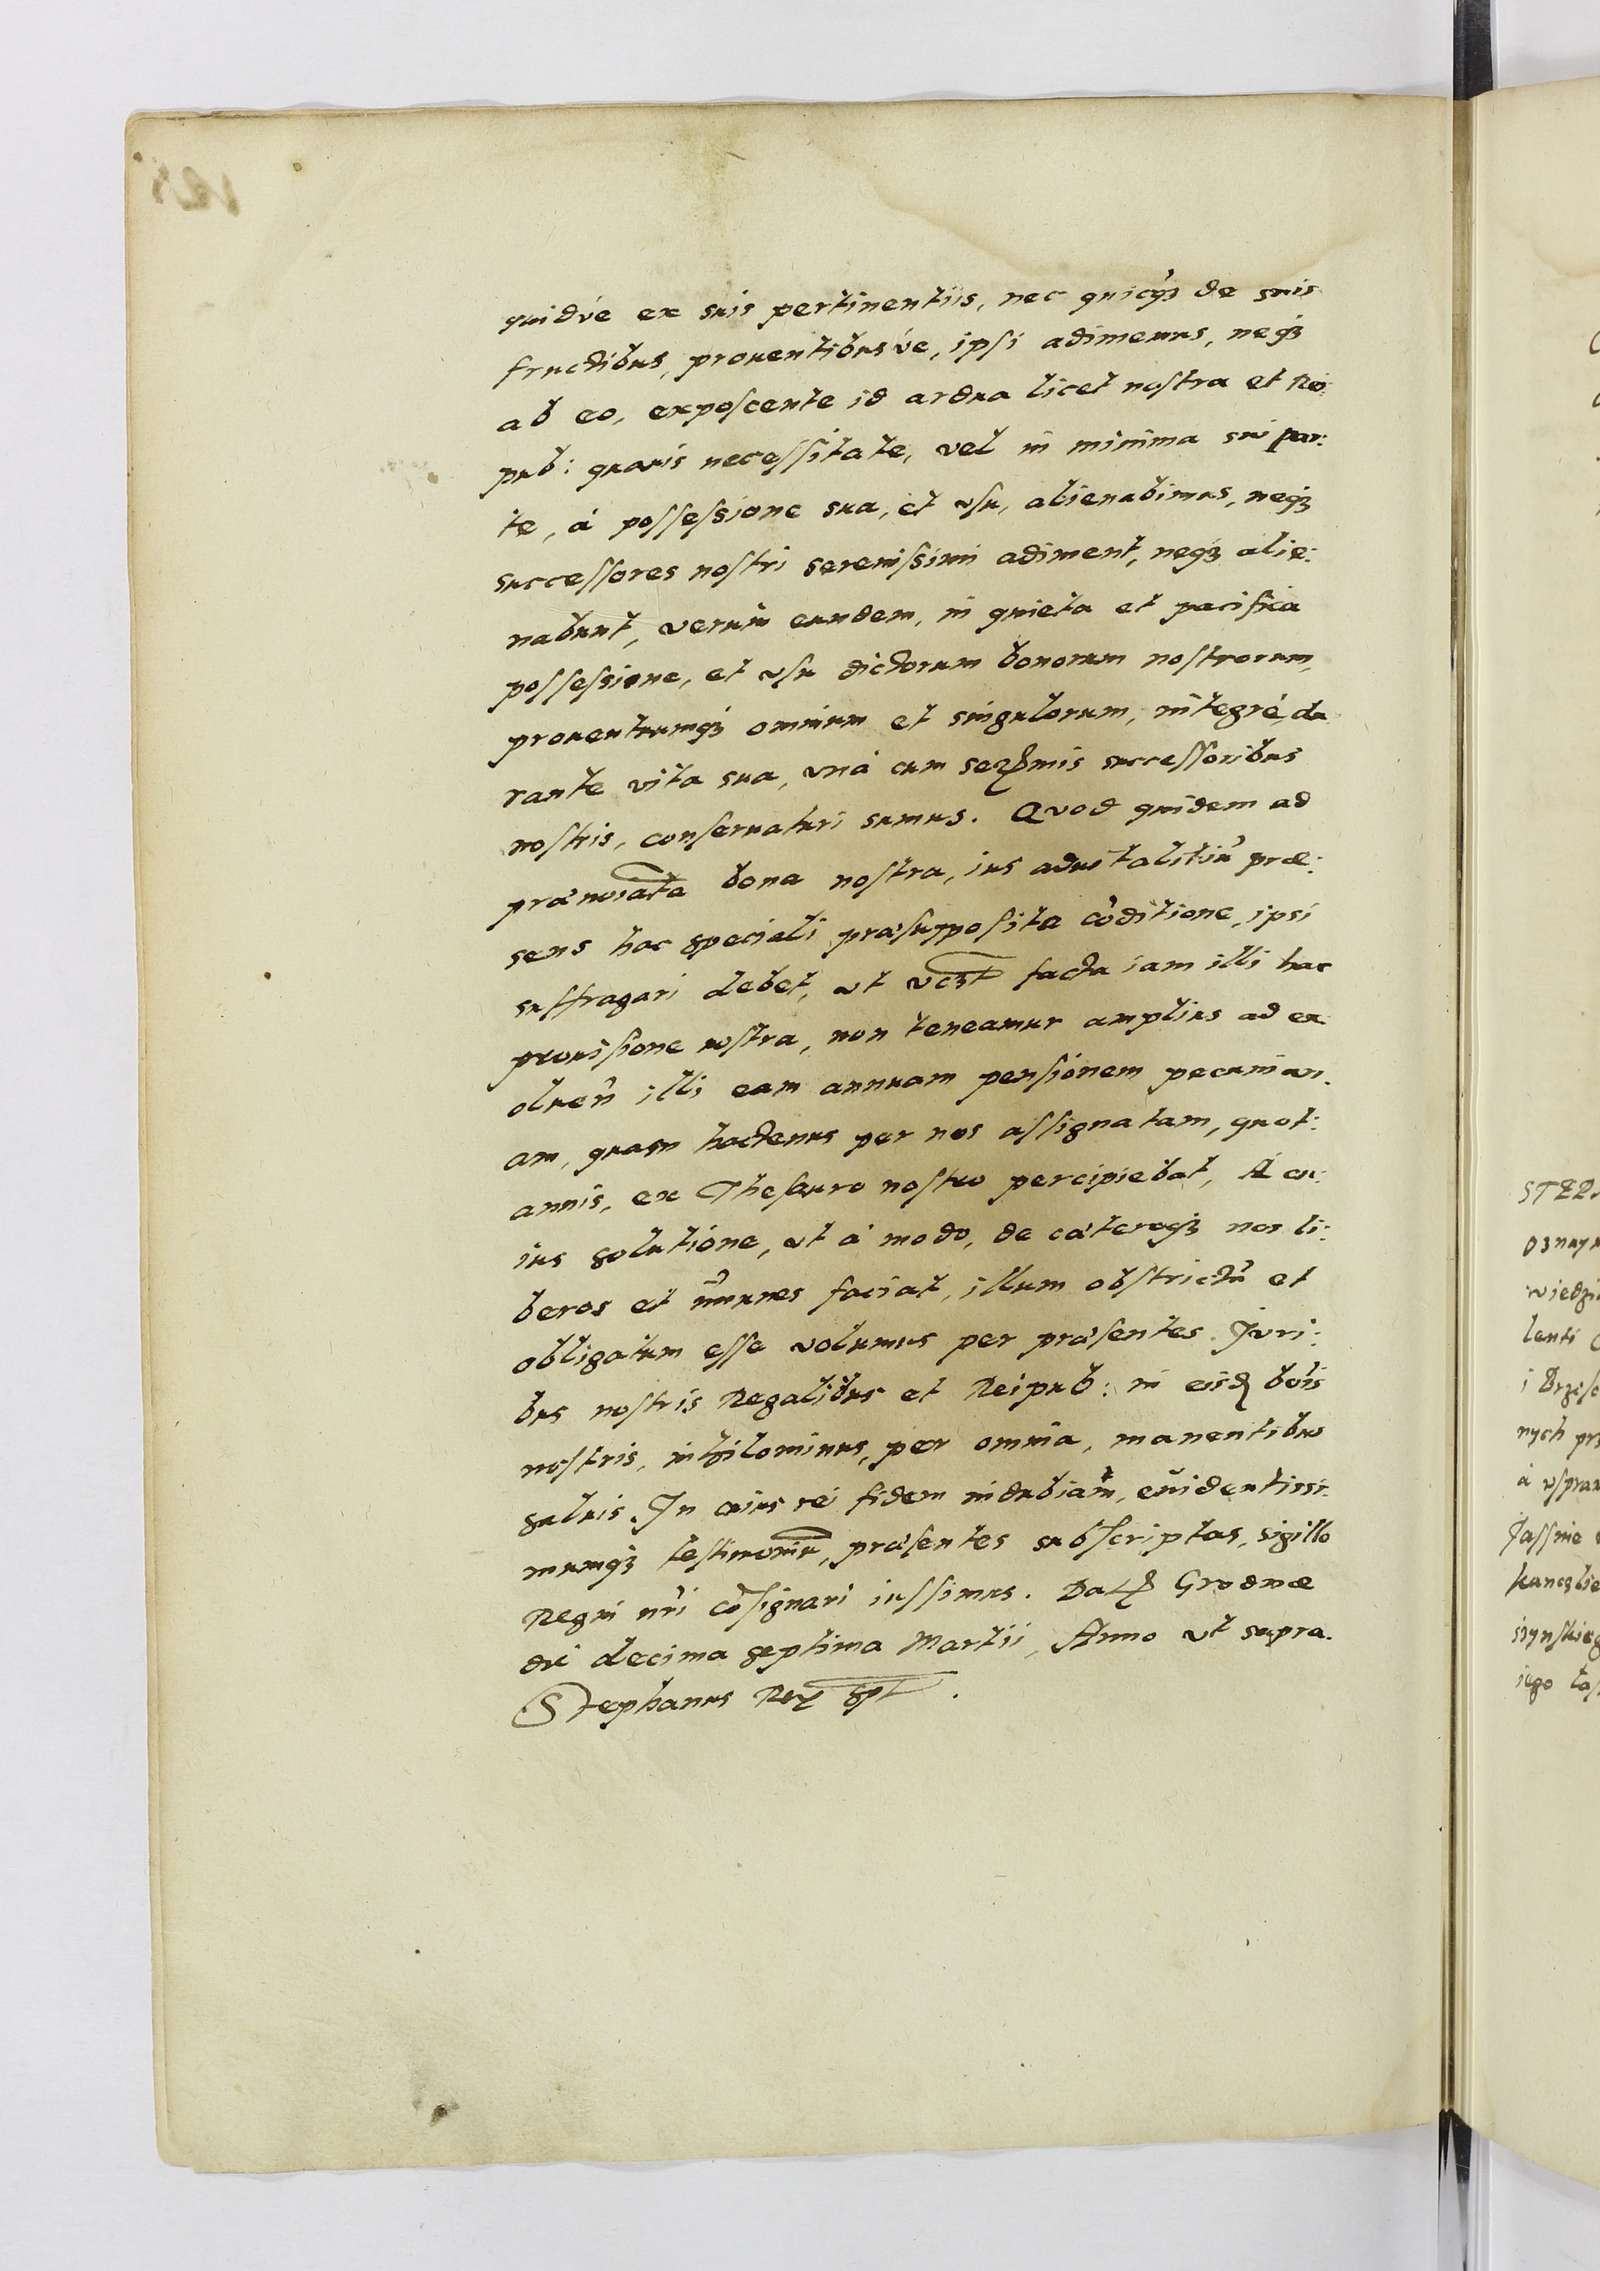 quidvé ex suis pertinentiis, nec quicq₃ de suis
fructibus, prouentibusvé, ipsi adimemus, neq₃
ab eo, exposcente id ardua licet nostra et Rei:
pub: quauis necessitate, vel in minima sui par:
te, à possessione sua, et vsu, alienabimus, neq₃
successores nostri serenissimi adiment, neq₃ alie:
nabunt, verum eundem, in quieta et pacifica
possessione, et vsu dictorum bonorum nostrorum,
prouentuumq₃ omnium et singulorum, integré, du
rante vita sua, vná cum sermis successoribus
nostris, conseruaturi sumus. Quod quidem ad
prænoiata bona nostra, ius aduitalitiu præ:
sens hac speciali præsupposita coditione, ipsi
suffragari debet, ut vczt facta iam illi hac
prouisione nostra, non teneamur amplius ad ex
oluen illi eam annuam pensionem pecunian.
am, quam hactenus per nos assignatam, quot:
annis, ex Thesauro nostro percipiebat, A cu:
ius solutione, ut à modo, de cæteroq₃ nos li:
beros et imunes faciat, illum obstrictu et
obligatum esse volumus per præsentes. Juri:
bus nostris Regalibus et Reipub: in eisd bonis
nostris, nihilominus, per omnia, manentibus
saluis. In cuius rei fidem indubiam, euidentissi:
mumq₃ testimoniu, præsentes subscriptas, sigillo
Regni nri cosignari iussimus. Dat Grodnæ
die decima septima Martii, Anno ut supra.
Stephanus Rex spt.